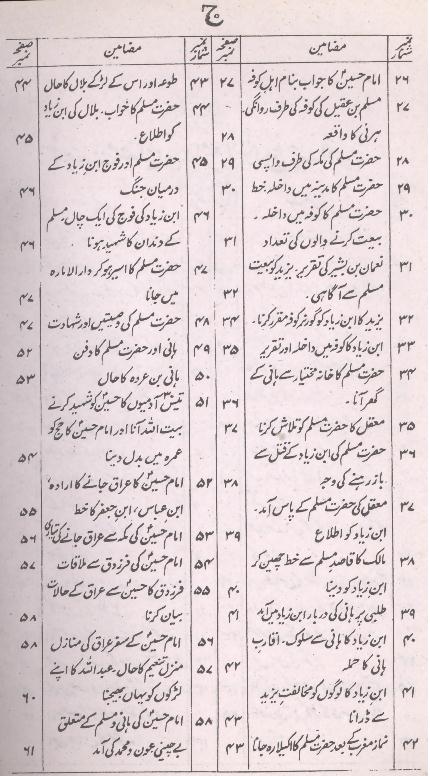 ج
نمبر شمار مضامین صفحہ نمبر
۲۶ امام حسینؑ کا جواب بنام اہل کوفہ ۲۷
۲۷ مسلم بن عقیل کی کوفہ کی طرف روانگی۔
ہرنی کا واقعہ ۲۸
۲۸ حضرت مسلم کی مکہ کی طرف واپسی ۲۹
۲۹ حضرت مسلم کا مدینہ میں داخلہ، خط ۳۰
۳۰ حضرت مسلم کا کوفہ میں داخلہ۔
بیعت کرنے والوں کی تعداد ۳۱
۳۱ نعمان بن بشیر کی تقریر۔ یزید کو بیعت
مسلم سے آگاہی۔ ۳۲
۳۲ یزید کا ابن زیاد کو گورنر کوفہ مقرر کرنا۔ ۳۴
۳۳ ابن زیاد کا کوفہ میں داخلہ اور تقریر ۳۵
۳۴ حضرت مسلم کا خانہ مختار سے ہانی کے
گھر آنا۔ ۳۶
۳۵ معقل کا حضرت مسلم کو تلاش کرنا ۳۷
۳۶ حضرت مسلم کی ابن زیاد کے قتل سے
باز رہنے کی وجہ ۳۸
۳۷ معقل کی حضرت مسلم کے پاس آمد۔
ابن زیاد کو اطلاع ۳۹
۳۸ مالک کا قاصدِ مسلم سے خط چھین کر
ابن زیاد کو دینا ۴۰
۳۹ طلبی پر ہانی کی دربار ابن زیاد میں آمد ۴۱
۴۰ ابن زیاد کا ہانی سے سلوک۔ اقارب
ہانی کا حملہ ۴۲
۴۱ ابن زیاد کا لوگوں کو مخالفتِ یزید
سے ڈرانا ۴۳
۴۲ نماز مغرب کے بعد حضرت مسلم کا اکیلا رہ جانا ۴۳
نمبر شمار مضامین صفحہ نمبر
۴۳ طوعہ اور اس کے لڑکے بلال کا حال ۴۴
۴۴ حضرت مسلم کا خواب۔ بلال کی ابن زیاد
کو اطلاع۔ ۴۵
۴۵ حضرت مسلم اور فوج ابن زیاد کے
درمیان جنگ ۴۶
۴۶ ابن زیاد کی فوج کی ایک چال، مسلم
کے دندان کا شہید ہونا ۴۶
۴۷ حضرت مسلم کا اسیر ہو کر دار الامارہ
میں جانا ۴۷
۴۸ حضرت مسلم کی وصیتیں اور شہادت ۴۷
۴۹ ہانی اور حضرت مسلم کا دفن ۵۲
۵۰ ہانی بن عروہ کا حال ۵۳
۵۱ تیس آدمیوں کا حسینؑ کو شہید کرنے
بیت اللہ آنا اور امام حسینؑ کا حج کو
عمرہ میں بدل دینا ۵۴
۵۲ امام حسینؑ کا عراق جانے کا ارادہ،
ابن عباس، ابن جعفر کا خط ۵۵
۵۳ امام حسینؑ کی مکہ سے عراق جانے کی تیاری ۵۶
۵۴ امام حسینؑ کی فرزدق سے ملاقات ۵۷
۵۵ فرزدق کا حسینؑ سے عراق کے حالات
بیان کرنا ۵۸
۵۶ امام حسینؑ کے سفر عراق کی منازل ۵۸
۵۷ منزل تنعیم کا حال۔ عبداللہ کا اپنے
لڑکوں کو یہاں بھیجنا ۶۰
۵۸ امام حسینؑ کی ہانی و مسلم کے متعلق
بے چینی عون و محمد کی آمد ۶۱